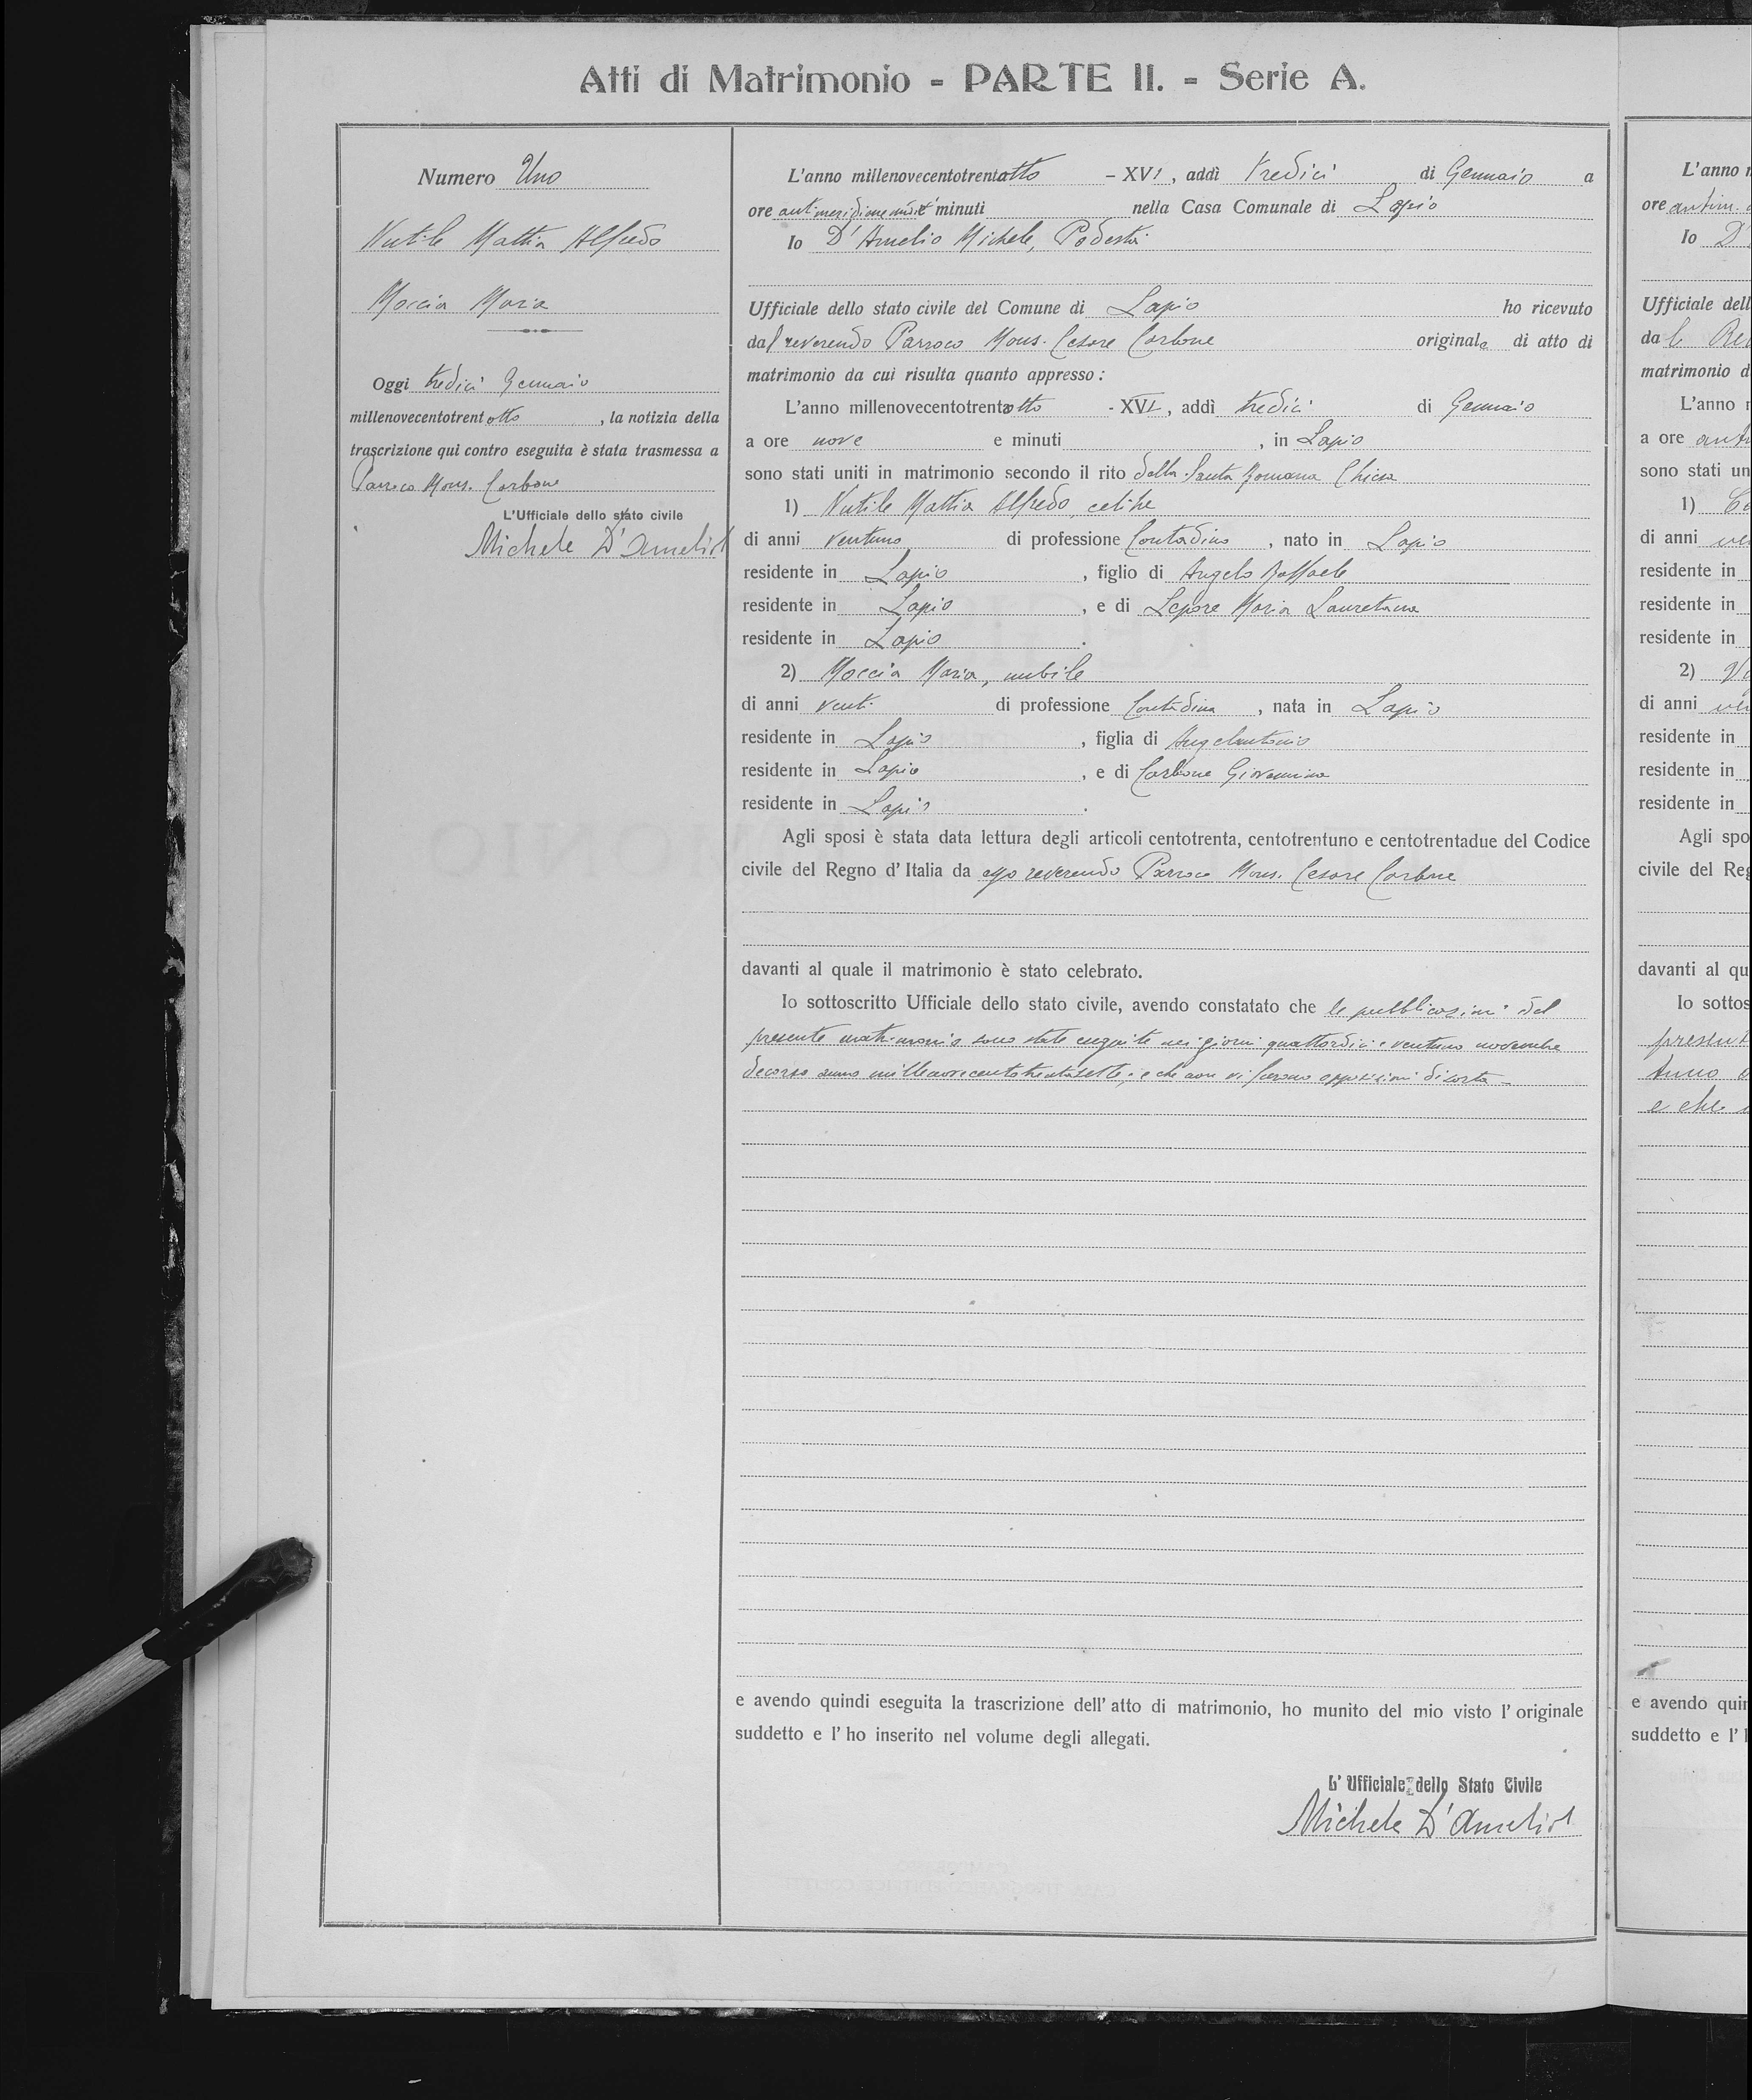 Atti di Matrimonio - PARTE II. - Serie A.
Numero Uno
Nutile Mattia Alfredo
Moccia Maria
Oggi tredici Gennaio
millenovecentotrentotto, la notizia della
trascrizione qui contro eseguita è stata trasmessa a
Parroco Mons. Carbone
L'Ufficiale dello stato civile
Michele D'Amelio
L'anno millenovecentotrentotto - XVI, addì tredici di Gennaio a
ore antimeridiane minuti nella Casa Comunale di Lapio
Io D'Amelio Michele, Podestà
Ufficiale dello stato civile del Comune di Lapio ho ricevuto
dal reverendo Parroco Mons. Cesare Carbone originale di atto di
matrimonio da cui risulta quanto appresso:
L'anno millenovecentotrentotto - XVI, addì tredici di Gennaio
a ore nove e minuti , in Lapio
sono stati uniti in matrimonio secondo il rito della Santa Romana Chiesa
1) Nutile Mattia Alfredo, celibe
di anni ventuno di professione Contadino, nato in Lapio
residente in Lapio, figlio di Angelo Raffaele
residente in Lapio, e di Lepore Maria Lauretana
residente in Lapio.
2) Moccia Maria, nubile
di anni venti di professione Contadina, nata in Lapio
residente in Lapio, figlia di Angelantonio
residente in Lapio, e di Carbone Giovannina
residente in Lapio.
Agli sposi è stata data lettura degli articoli centotrenta, centotrentuno e centotrentadue del Codice
civile del Regno d'Italia da esso reverendo Parroco Mons. Cesare Carbone
davanti al quale il matrimonio è stato celebrato.
Io sottoscritto Ufficiale dello stato civile, avendo constatato che le pubblicazioni del
presente matrimonio sono state eseguite nei giorni quattordici e ventuno novembre
decorso anno millenovecentotrentasette; e che non vi furono opposizioni di sorta
e avendo quindi eseguita la trascrizione dell'atto di matrimonio, ho munito del mio visto l'originale
suddetto e l'ho inserito nel volume degli allegati.
L'Ufficiale dello Stato Civile
Michele D'Amelio